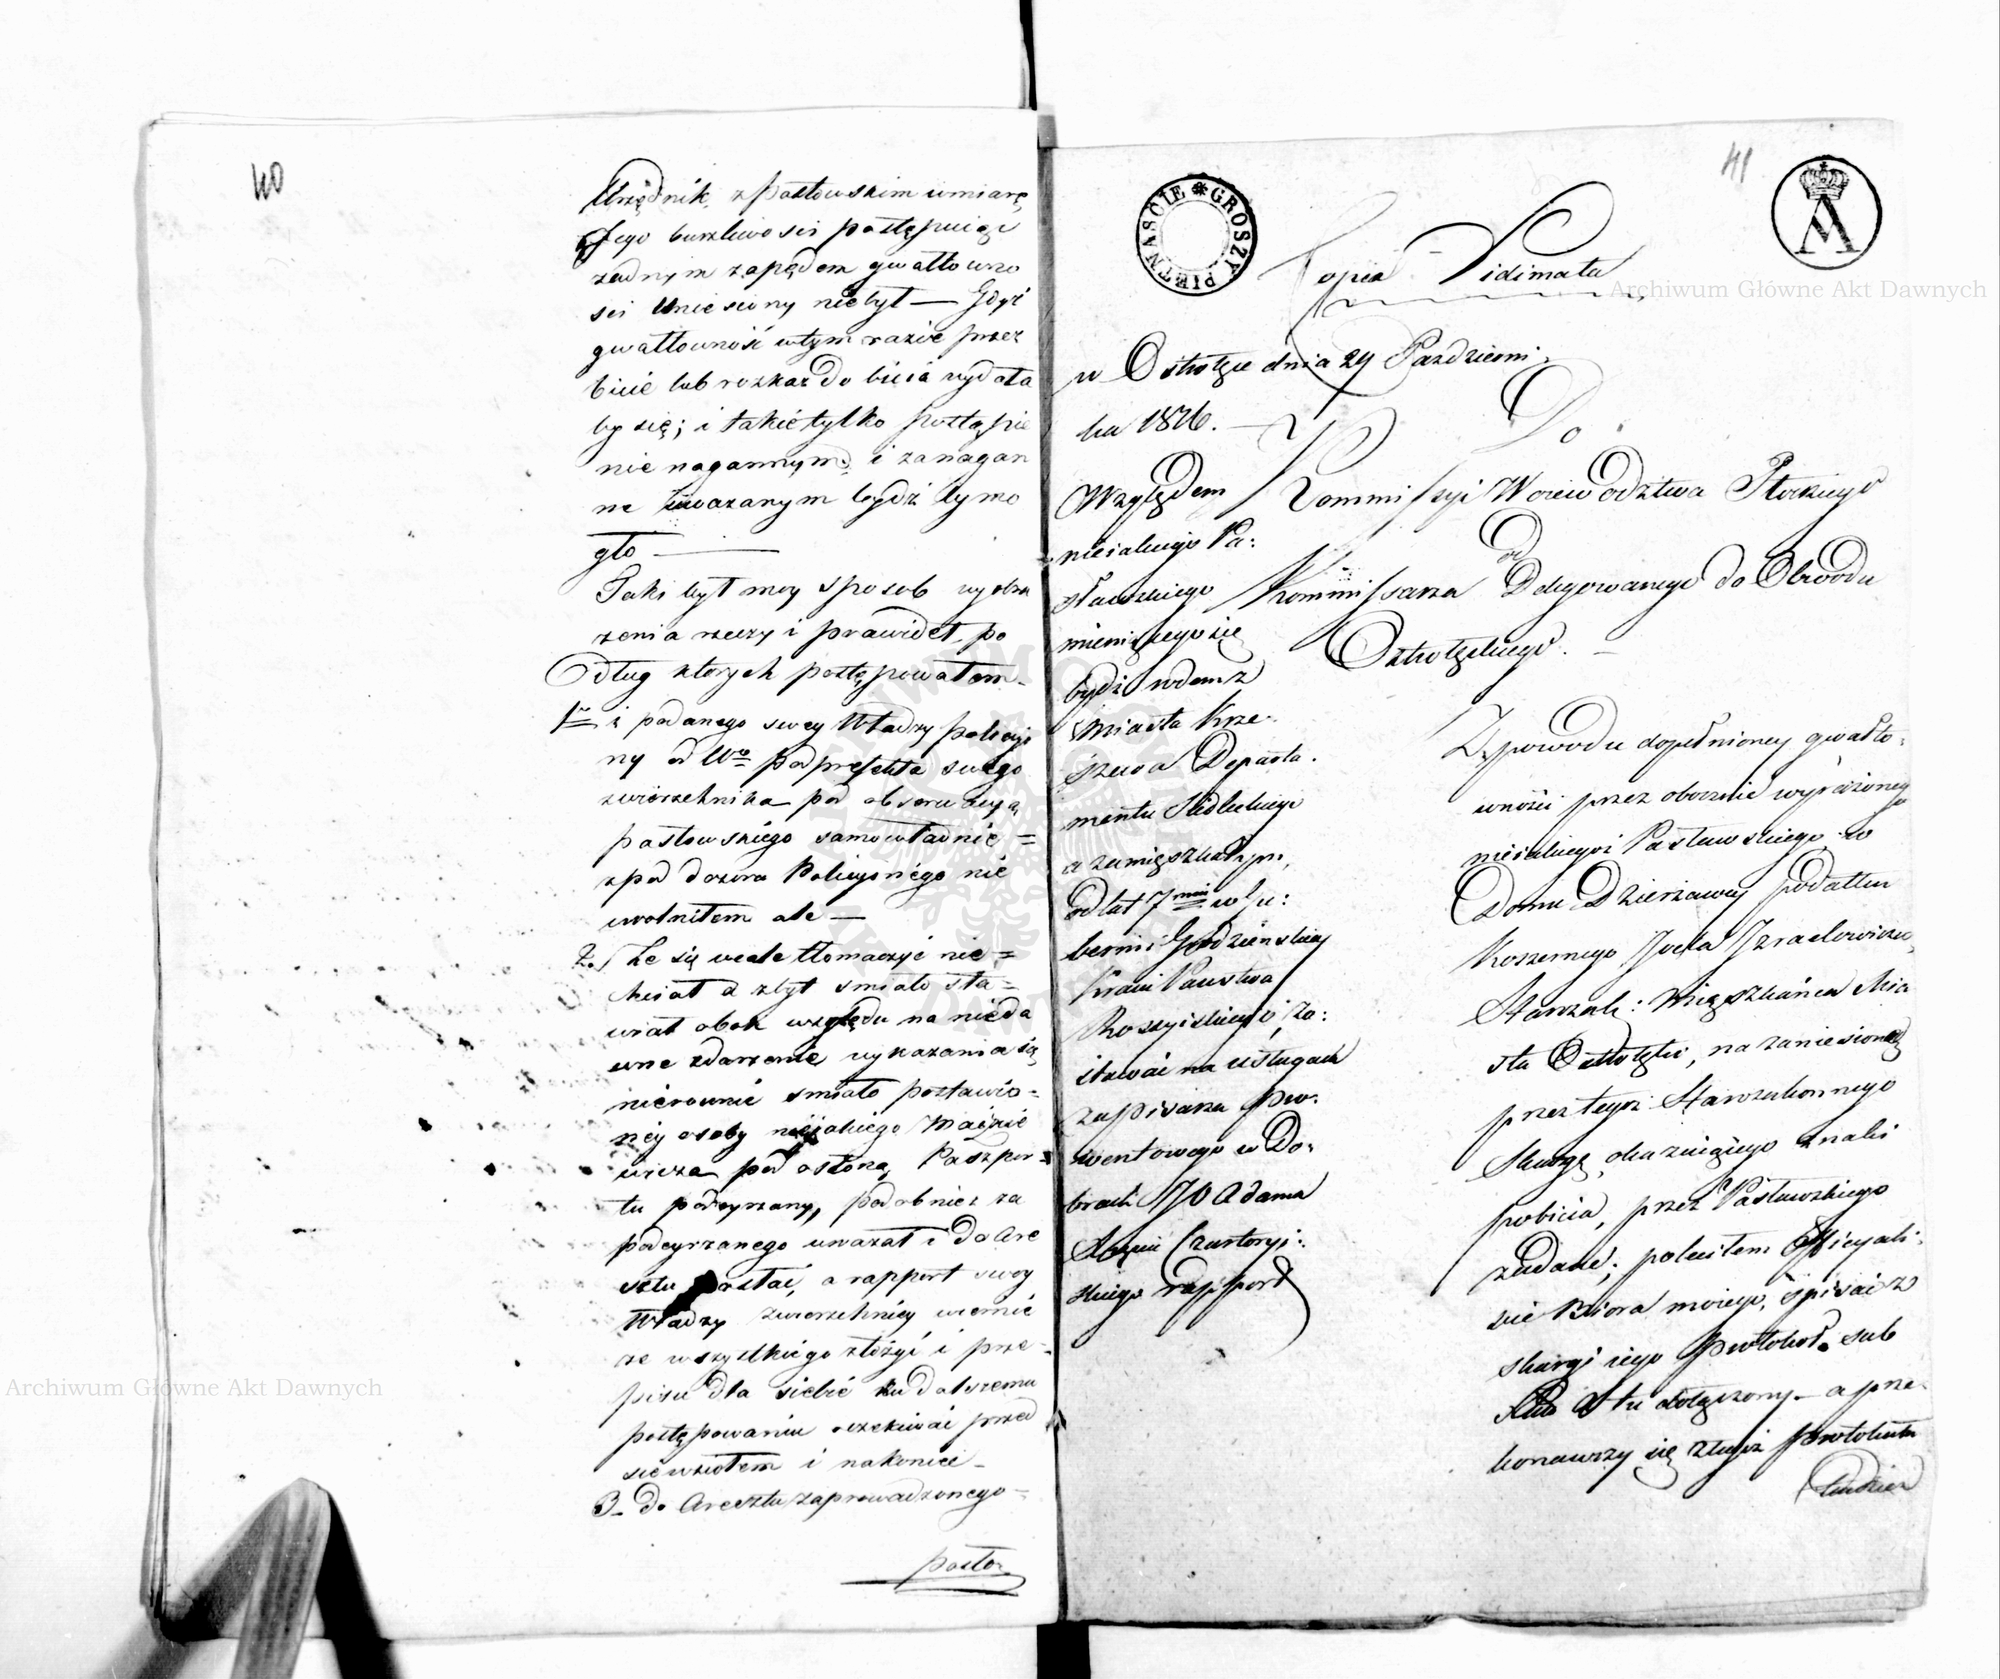 40
Urzędnik z Pastowskim wmiarę
Jego burzliwosci postępuiąc
zadnym zapędem gwałtowno
sci uniesiony niebył — Gdyż
gwałtowność wtym razie przez
bicie lub rozkaz do bicia wydała
by się; i takie tylko postąpie
nie nagannym i zanagan
ne uwazanym bydź by mo
gło —
Taki był moy sposob wyobra
zenia rzeczy i prawideł, po
dług ktorych postępowałem
1. i podanego swey Władzy policyi
ny od Wo podprefekta swego
zwierzchnika pod obserwacyą
pastowskiego samowładnie =
zpod dozoru Policyinego nie
uwolniłem ale —
2. Ze się wcale tłomaczyć nie =
chciał a zbyt smiało sta =
wiał obok względu na nieda
wne zdarzenie wykazania się
nierownie smiało postawio =
ney osoby niejakiego
wicza pod osłoną Paszpor =
tu podeyrzany, podobnież za
podeyrzanego uwazał i do are
sztu posłać, a rapport swoy
Władzy zwierzchniey wiernie
ze wszystkiego złożyć i prze =
pisu dla siebie ku dalszemu
postępowaniu oczekiwać przed
siewziołem i nakoniec —
3 do Aresztu zaprowadzonego =
posto
41
GROSZY PIETNASCIE
Kopia Vidimata
w Ostrołęce dnia 24 Pazdzierni
ka 1816. —
Do
Względem
nieiakiego Pa:
stawskiego
mieniącego się
bydź rodem z
Miasta Krze.
szewa Departa.
mentu Siedleckiego
a zamięszkałym,
od lat 7miu w Gu:
bernii Grodzieńskiey
Kraiu Panstwa
Rossyiskiego, zo:
stawać na usługach
za pisarza pro:
wentowego w Do:
brach JO Adama
Xięcia Czartoryi:
skiego rapport
Kommissyi Woiewodztwa Płockiego
od
Kommissarza Delegowanego do Obwodu
Ostrołęckiego. —
Z powodu dopełnioney gwałto:
wności przez obocznie wyrażonego
nieiakiegoś Pastawskiego w
Domu Dzierżawcy podatku
Koszernego Jocka Izraelowicza,
Starzak: Mięszkańca Mia
sta Ostrołęki, na zaniesioną
przez tegoż Starozakonnego
Skargę, okazuiącego znaki
pobicia, przez Pastawskiego
zadane; poleciłem Officyali:
scie Biora moiego, spisać z
skargi iego Protokoł sub
tu dołączony — a prze
konawszy się z tegoż protokułu